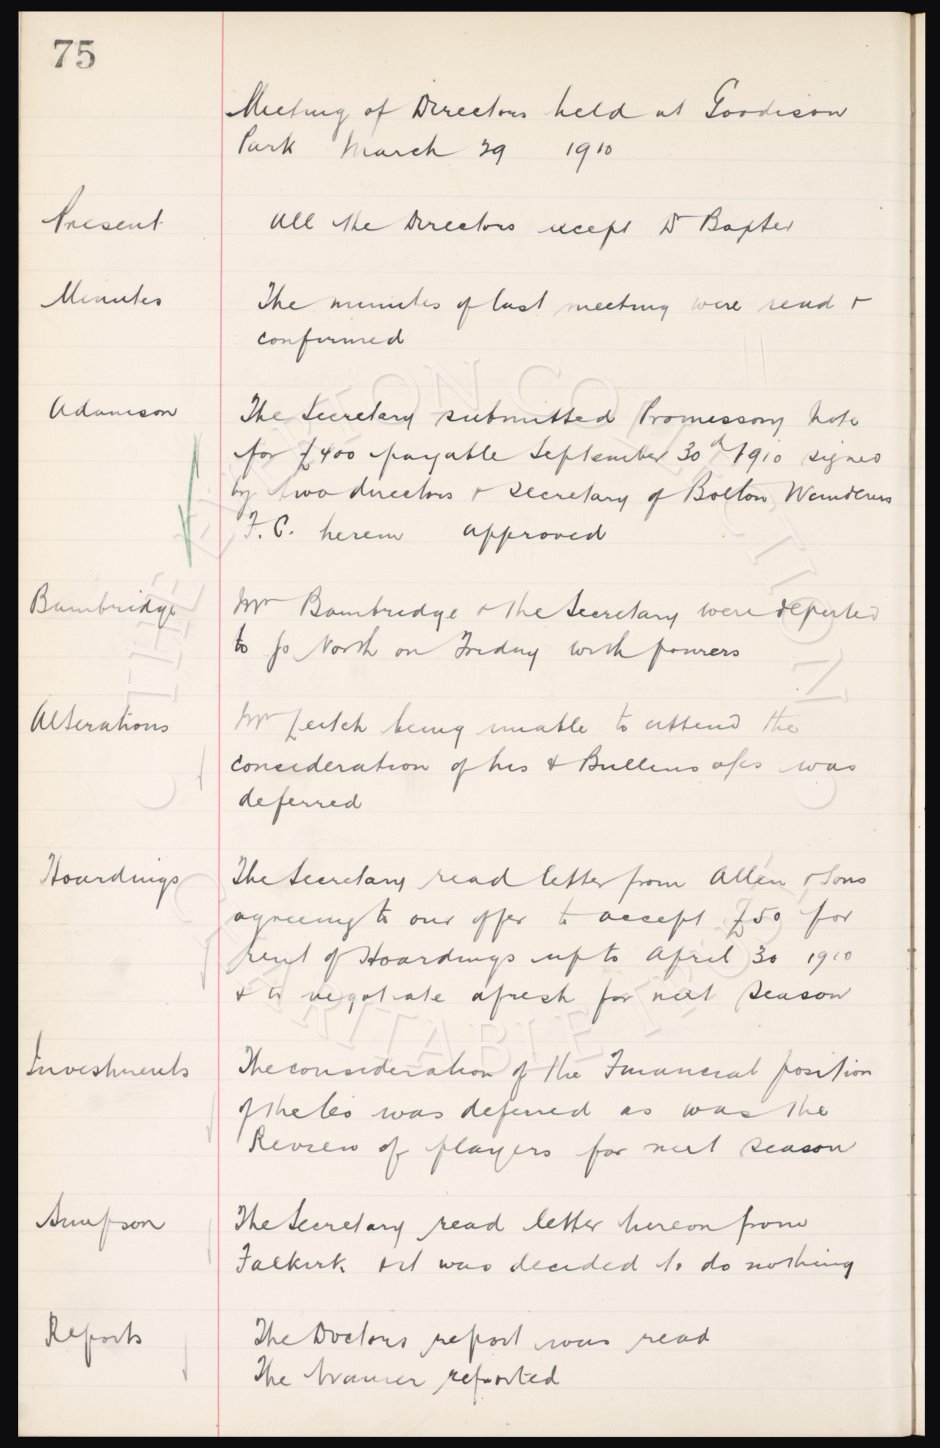 75
Meeting of Directors held at Goodison
Park March 29 1910
Present
All the Directors except Dr Baxter
Minutes
The minutes of last meeting were read &
confirmed
Adamson
The Secretary submitted Promissory Note
for £400 payable September 30th 1910 signed
by two directors & secretary of Bolton Wanderers
F.C. herein approved
Bambridge
Mr Bambridge & the Secretary were deputed
to go North on Friday with powers
Alterations
Mr Leitch being unable to attend the
consideration of his & Bullens a/cs was
deferred
Hoardings
The Secretary read letter from Allen & Sons
agreeing to our offer to accept £50 for
rent of Hoardings up to April 30 1910
& to negotiate afresh for next season
Investments
The consideration of the Financial position
of the Co was deferred as was the
Review of players for next season
Simpson
The Secretary read letter hereon from
Falkirk & it was decided to do nothing
Reports
The Doctors report was read
The trainer reported